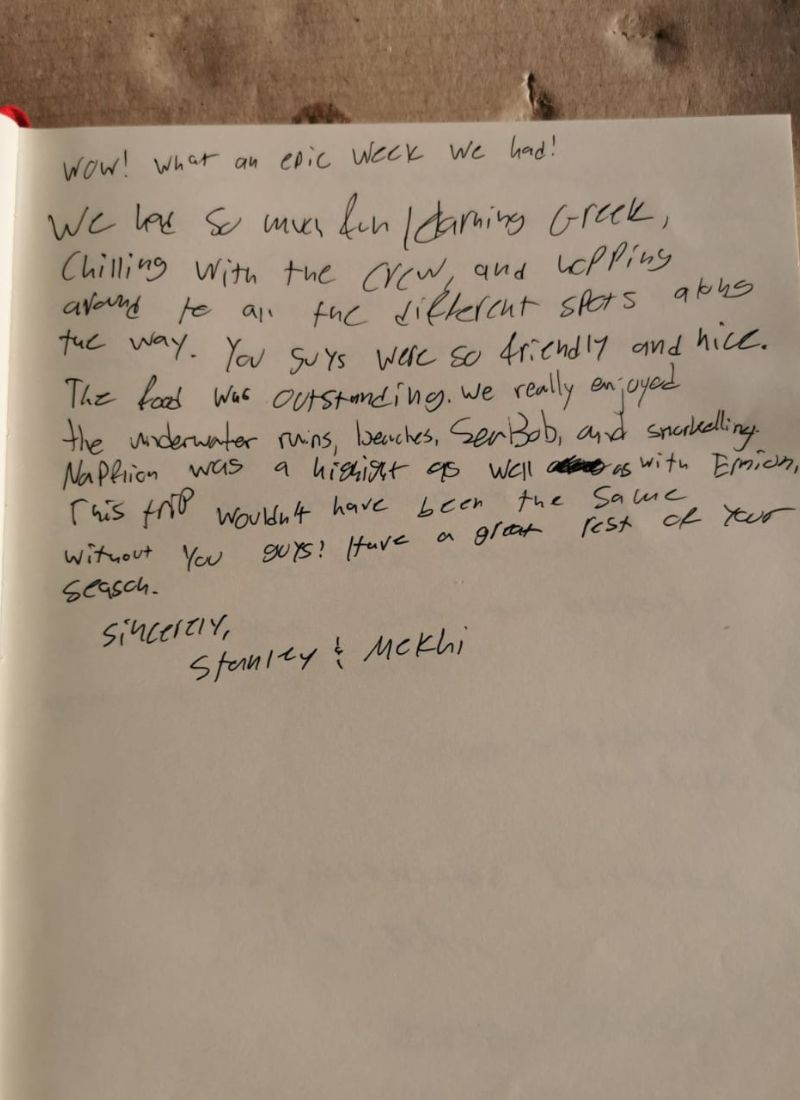 WOW! What an epic week we had!
We had so much fun learning Greek,
Chilling with the crew, and hopping
around to all the different spots along
the way. You guys were so friendly and nice.
The food was outstanding. We really enjoyed
the underwater ruins, beaches, SeaBob, and snorkelling.
Napflion was a highlight as well as with Ermion,
This trip wouldn't have been the same
without you guys! Have a great rest of your
season.
Sincerly,
Stanley & Mckhi